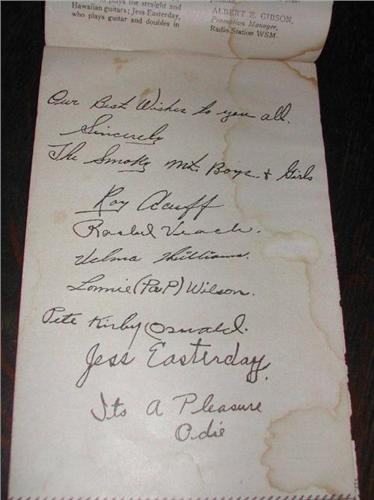 plays the straight and
Hawaiian guitars; Jess Easterday,
who plays guitar and doubles in
ALBERT E. GIBSON,
Promotion Manager,
Radio Station WSM.
Our Best Wishes to you all.
Sincerely
The Smoky Mt. Boys & Girls
Roy Acuff
Rachel Veach.
Velma Williams.
Lonnie (Pap) Wilson.
Pete Kirby Oswald.
Jess Easterday.
Its A Pleasure
Odie